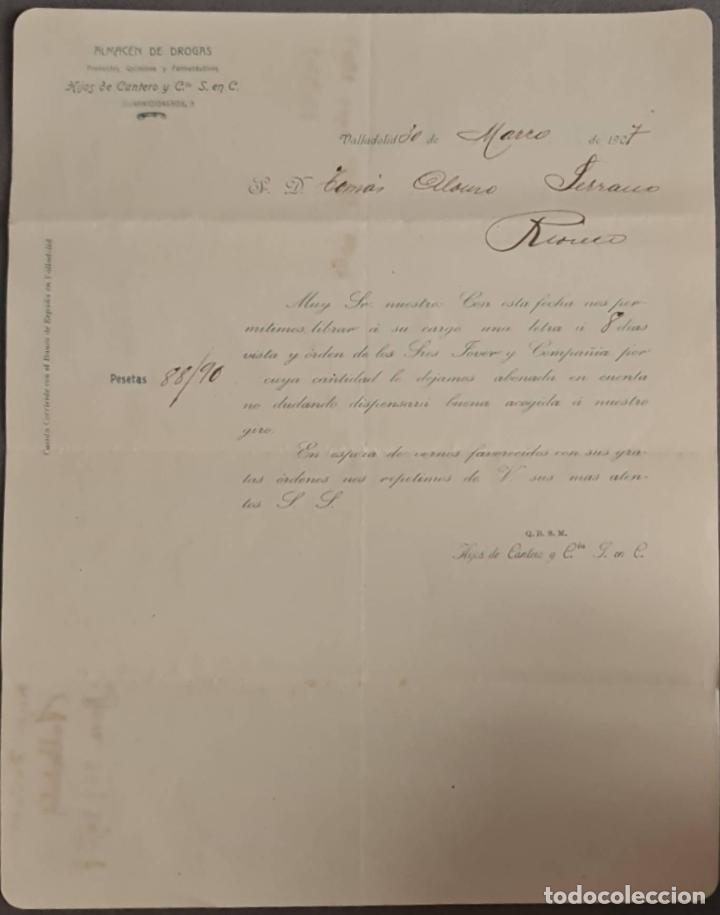 ALMACÉN DE DROGAS
Productos Químicos y Farmacéuticos
Hijos de Cantero y Cía S. en C.
Valladolid 30 de Marzo de 1927
S. D. Tomás Alonso Serrano
Rioseco
Muy Sr. nuestro: Con esta fecha nos per-
mitimos librar á su cargo una letra á 8 dias
vista y órden de los Sres Jover y Compañia por
Pesetas 88/90 cuya cantidad le dejamos abonada en cuenta
no dudando dispensará buena acogida á nuestro
giro.
En espera de vernos favorecidos con sus gra-
tas órdenes nos repetimos de V. sus mas aten-
tos S. S.
Q. B. S. M.
Hijos de Cantero y Cía S. en C.
Cuenta Corriente con el Banco de España en Valladolid
todocoleccion